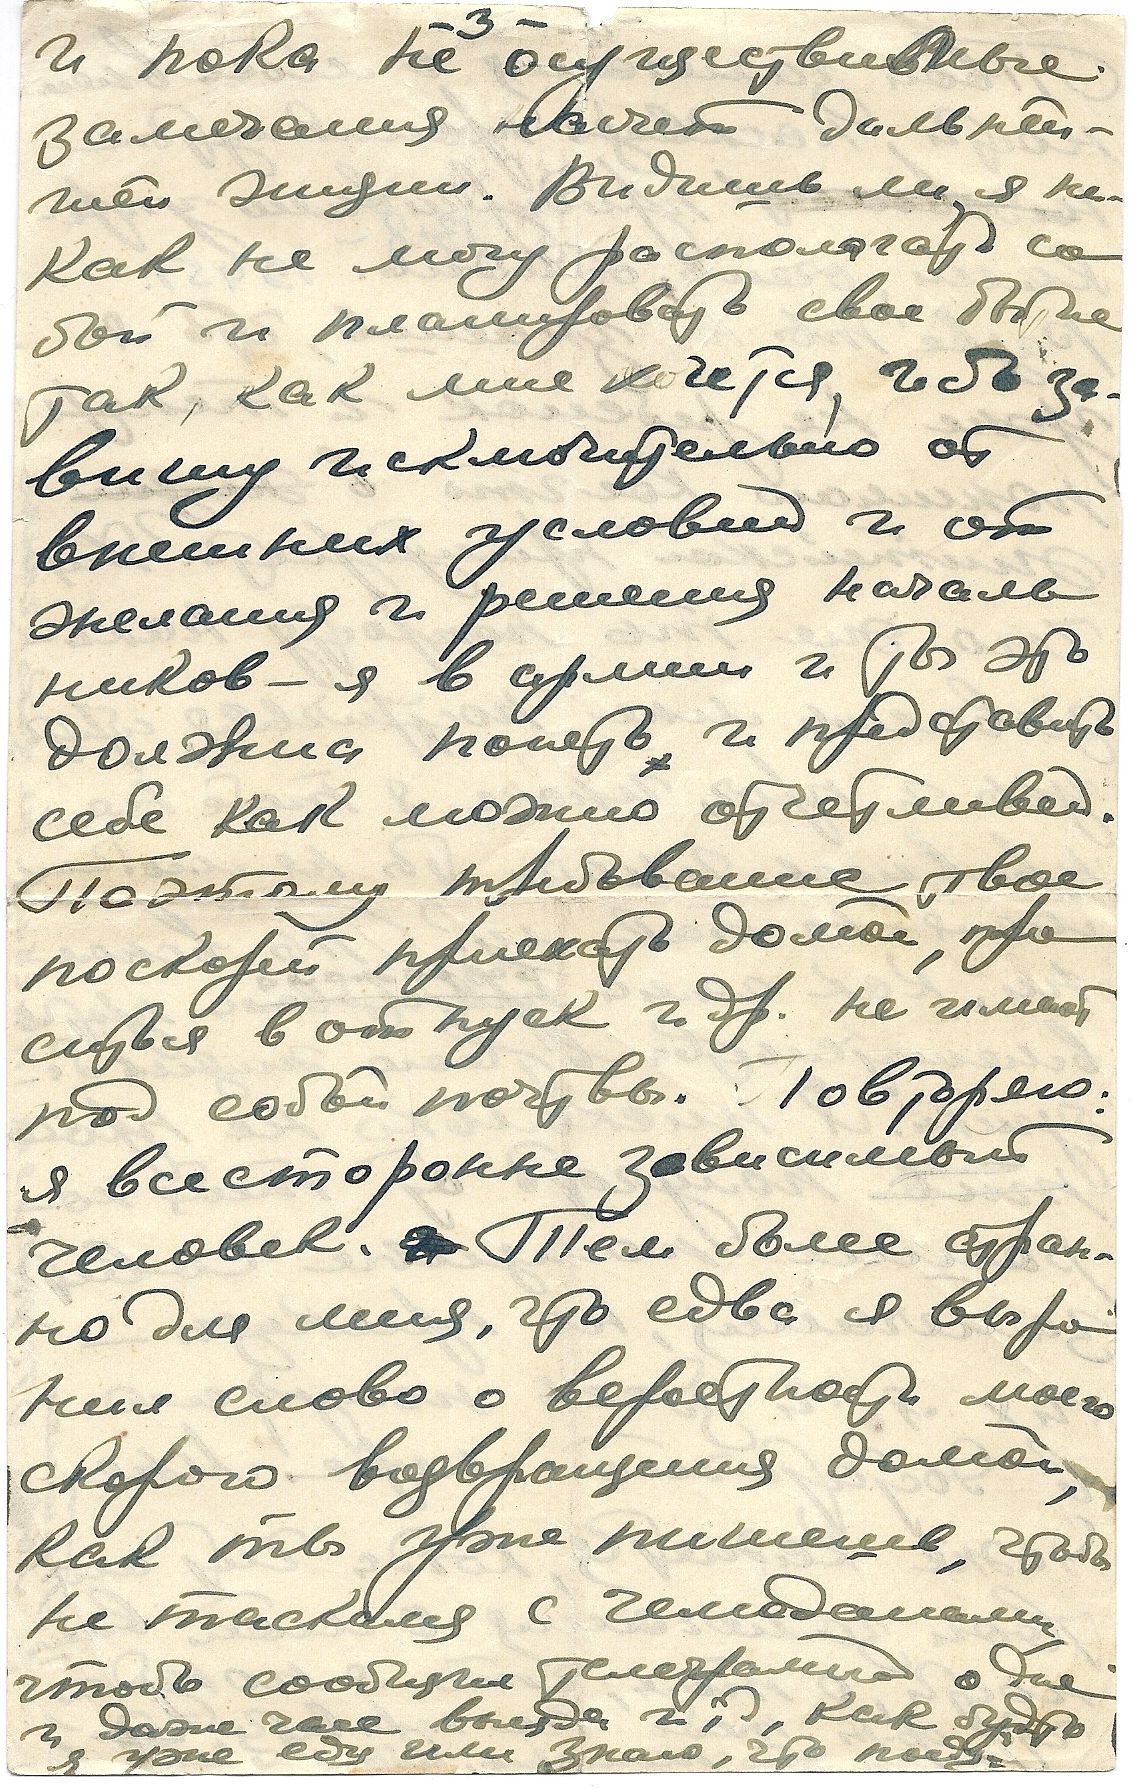 - 3 -
и пока не осуществимые
замечания насчет дальней-
шей жизни. Видишь ли, я ни-
как не могу располагать со
бой и планировать свое бытие
так, как мне хочется, ибо за-
вишу исключительно от
внешних условий и от
желания и решения началь
ников – я в армии и ты это
должна понять и представить
себе как можно отчетливей.
Поэтому требование твое
поскорей приехать домой, про
ситься в отпуск и др. не имеет
под собой почвы. Повторяю:
я всесторонне зависимый
человек. Тем более стран-
но для меня, что едва я выро
нил слово о вероятности моего
скорого возвращения домой,
как ты уже пишешь, чтобы
не таскался с чемоданами,
чтобы сообщил телеграммой о дне
и даже часе выезда и т.д., как будто
я уже еду или знаю, что поеду.